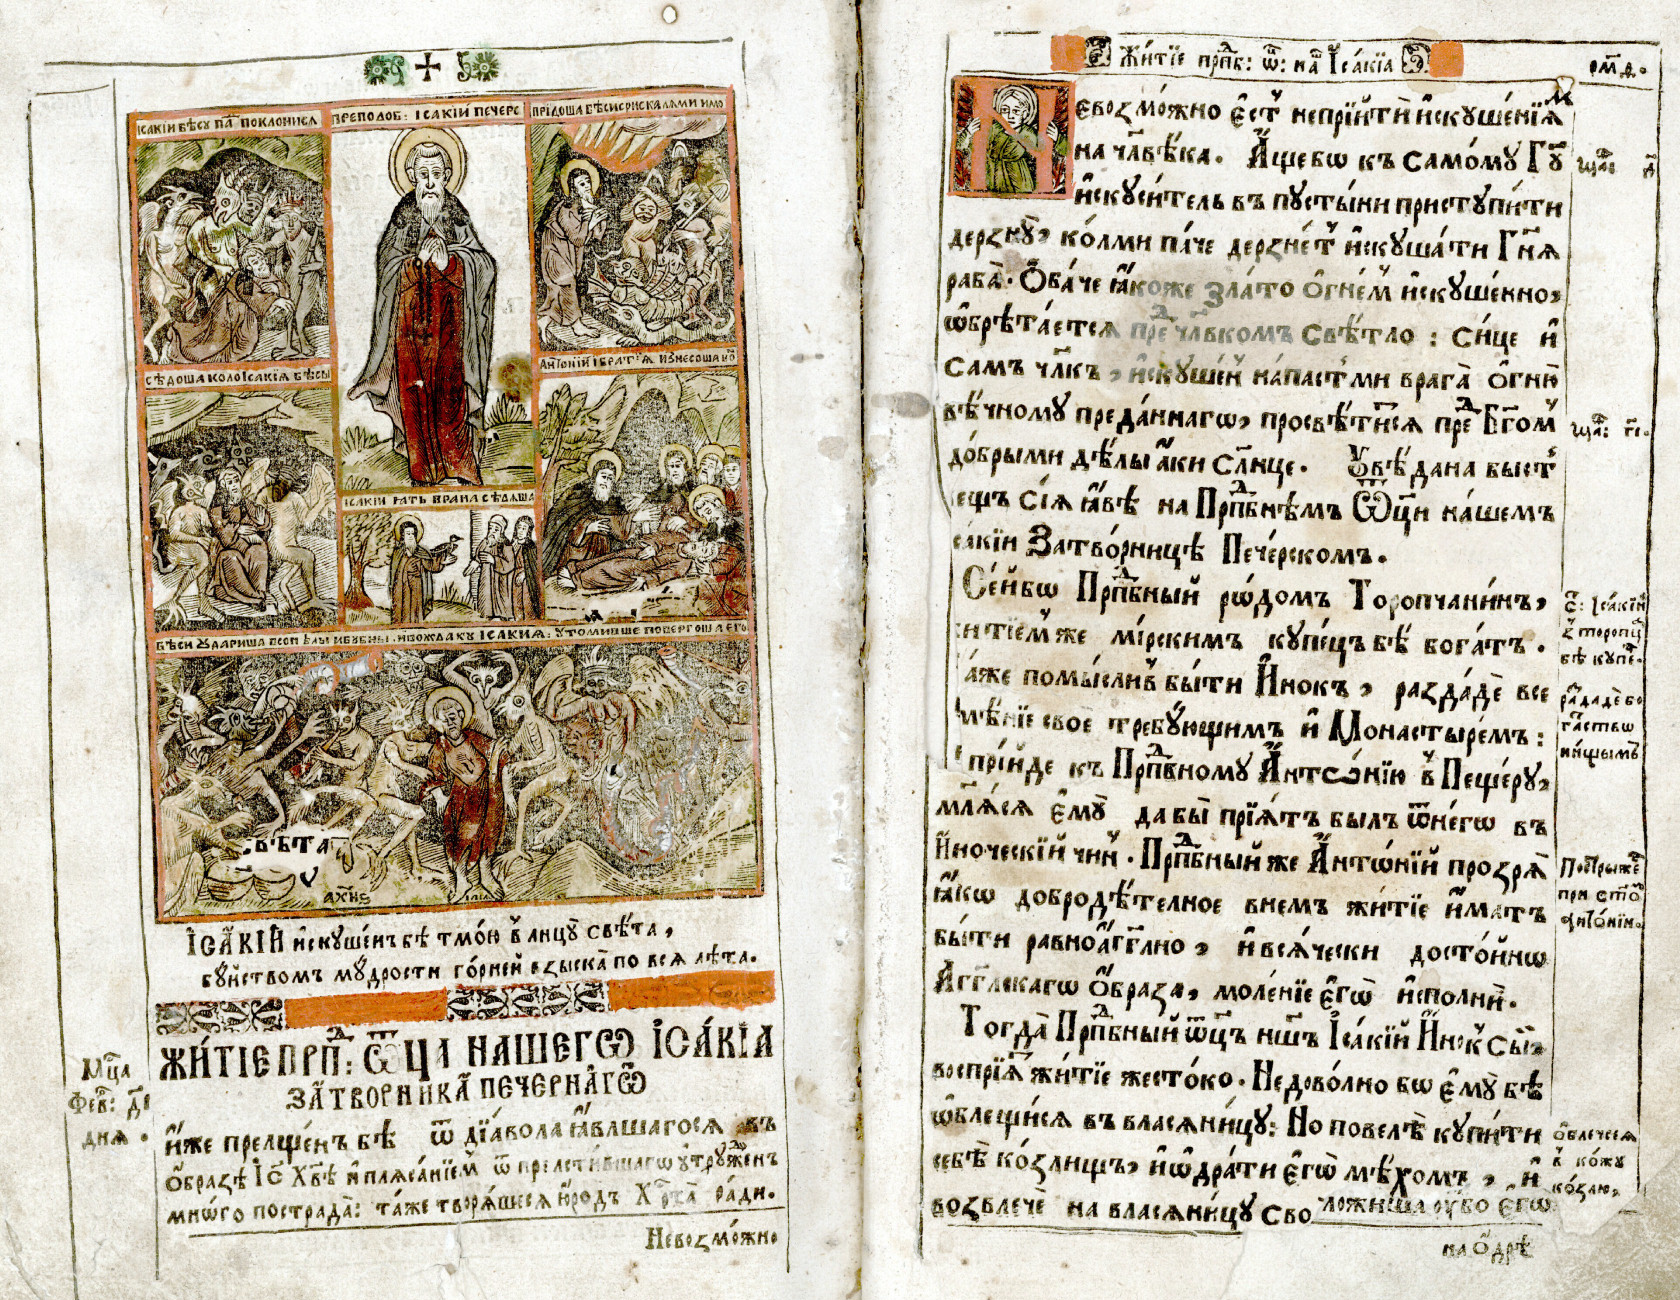 ІСАКІИ БѢСУ ПА҃ ПОКЛОНИСѦ
ПРЕПОДОБ: ІСАКІЙ ПЕЧЕРС
ПРІДОША БѢСИ
СѢДОША КОЛО ІСАКІѦ БѢСЫ
АНТОНІЙ І БРАТ ІѦ ИЗНЕСОША
ІСАКІЙ ꙖТЬ ВРАНА
БѢСИ УДАРИША ИБУБНЫ
ІСАКИѦ: УТОМИВШЕ ПОВЕРГОША ЕГО
ІСА́КІЙ и҆скуше́нъ бѣ̀ тмо́ю в̾ лицу̀ свѣ́та,
бу́йствомъ му́дрости го́рней взыска̀ по всѧ лѣ́та.
ЖИ́ТІЕ ПРПⷣ: Ѿ҃ЦА НАШЕГѠ ІСА́КІА
ЗАТВОРНИКА ПЕЧЕРНАГѠ
Мц҃а
Фев: д҃і
днѧ.
И҆́же преле́щенъ бѣ̀ ѿ дїа́вола ꙗ҆́влшагосѧ въ
ѻ҆́бразѣ Іс҃ Хв҃ѣ и҆ плѧса́нїем̾ ѿ прелсти́вшагѡ утружде́нъ
мнѡ́го пострада̀: та́же творѧ́щисѧ ю҆ро́дъ Хрⷭ҇та̀ ра́ди.
Невозмо́жно
Жи́тїе прпⷣб: ѿ: на҃ Іса́кїа
рм҃д.
Невозмо́жно є҆́ст̾ непрїйтѝ и҆скуше́нїѧ
на чл҃вѣ́ка. А҆́щебѡ къ само́му Гдⷭ҇у
и҆скуси́тель въ пусты́ни приступи́ти
дерзну̀, ко́лми па́че дерзне́т̾ и҆скуша́ти Гдⷭ҇нѧ
раба̀. Ѻ҆ба́че ꙗ҆́коже зла́то ѻ҆гне́м̾ и҆скуше́нно,
ѡ҆брѣта́етсѧ преⷣ чл҃вѣкомъ свѣ́тло: си́це и҆
самъ чл҃къ, и҆скуше́н̾ напаст̾ми врага̀ ѻ҆гню̀
вѣ́чному преда́ннагѡ, просвѣти́тсѧ преⷣ Бг҃ом̾
до́брыми дѣ́лы а҆́ки сл҃нце. Оу҆вѣ́дана быст̾
вещъ сїѧ̀ ꙗ҆́вѣ на Прпⷣбнѣмъ Ѿц҃и на́шемъ
Іса́кїи Затво́рницѣ Пече́рскомъ.
Се́йбѡ Прпⷣбный ро́домъ Торопча́нинъ,
жи́тїем̾ же мі́рскимъ купе́цъ бѣ̀ бога́тъ.
та́же помы́слив̾ бы́ти И҆́нокъ, разда́дѐ все
и҆мѣ́нїе своѐ тре́бующимъ и҆ Монастыре́мъ:
и҆ прїи́де къ Прпⷣбному А҆нтѡ́нїю в̾ Пеще́ру,
молѧ́сѧ є҆му̀ да бы̀ прїѧ́тъ былъ ѿ не́гѡ въ
И҆́ноческїй чи́н̾. Прпⷣбный же А҆нтѡ́нїй прозрѧ̀
ꙗ҆́кѡ доброде́телное внемъ жи́тїе и҆́матъ
бы́ти равноаг҃глно, и҆ всѧ́чески досто́йнѡ
Аг҃глскагѡ ѻ҆́браза, моле́нїе є҆гѡ̀ и҆спо́лни.
Тогда̀ Прпⷣбный ѿц҃ъ нш҃ъ Іса́кїй И҆́нок̾ сы́й,
воспрїѧ́т̾ жи́тїе жесто́ко. Недово́лно бѡ є҆му̀ бѣ̀
ѡ҆блещи́сѧ въ власѧни́цу: Но повелѣ̀ купи́ти
себѣ̀ ко́злищъ, и҆ ѡ҆дра́ти є҆гѡ̀ мѣ́хомъ, и҆
возвлечѐ на власѧни́цу сво ложи́ша оу҆́бо є҆гѡ̀
на ѻ҆́дрѣ
С҃: Іса́кїй
з̾ торопц̾
бѣ купе́.
ра́здадѐ бо
га́ствѡ
ни́щымъ
Постри́же
при ст҃о҃
Антѡ́нїи.
ѻ҆блечесѧ
в̾ ко́жу
ко́злю,